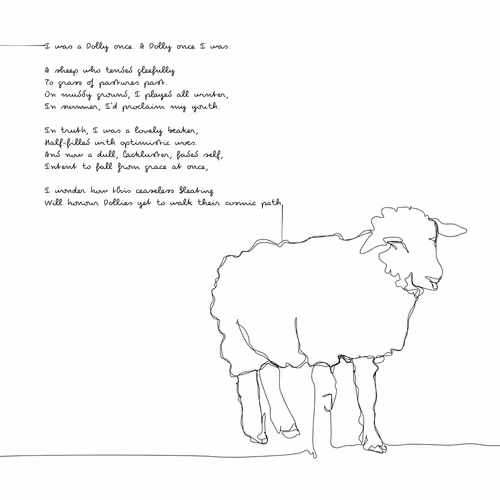 I was a Dolly once. A Dolly once I was.
A sheep who tended gleefully
To grass of pastures past.
On muddy ground, I played all winter,
In summer, I'd proclaim my youth.
In truth, I was a lovely beaker,
Half-filled with optimistic woes.
And now a dull, lacklustre, faded self,
Intent to fall from grace at once,
I wonder how this ceaseless bleating
Will honour Dollies yet to walk their cosmic path